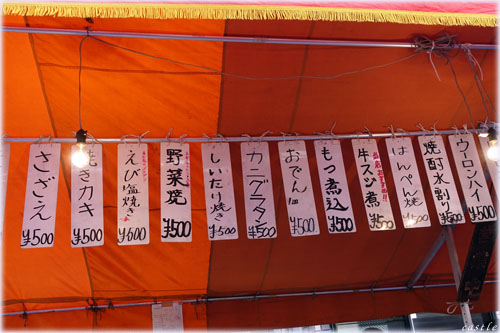 さざえ
¥500
焼きカキ
¥500
えび塩焼き
¥600
野菜焼
¥500
しいたけ焼き
¥500
カニグラタン
¥500
おでん一皿
¥500
もつ煮込
¥500
牛スジ煮
¥500
はんぺん焼
¥400
焼酎水割り
¥500
ウーロンハイ
¥500
castle